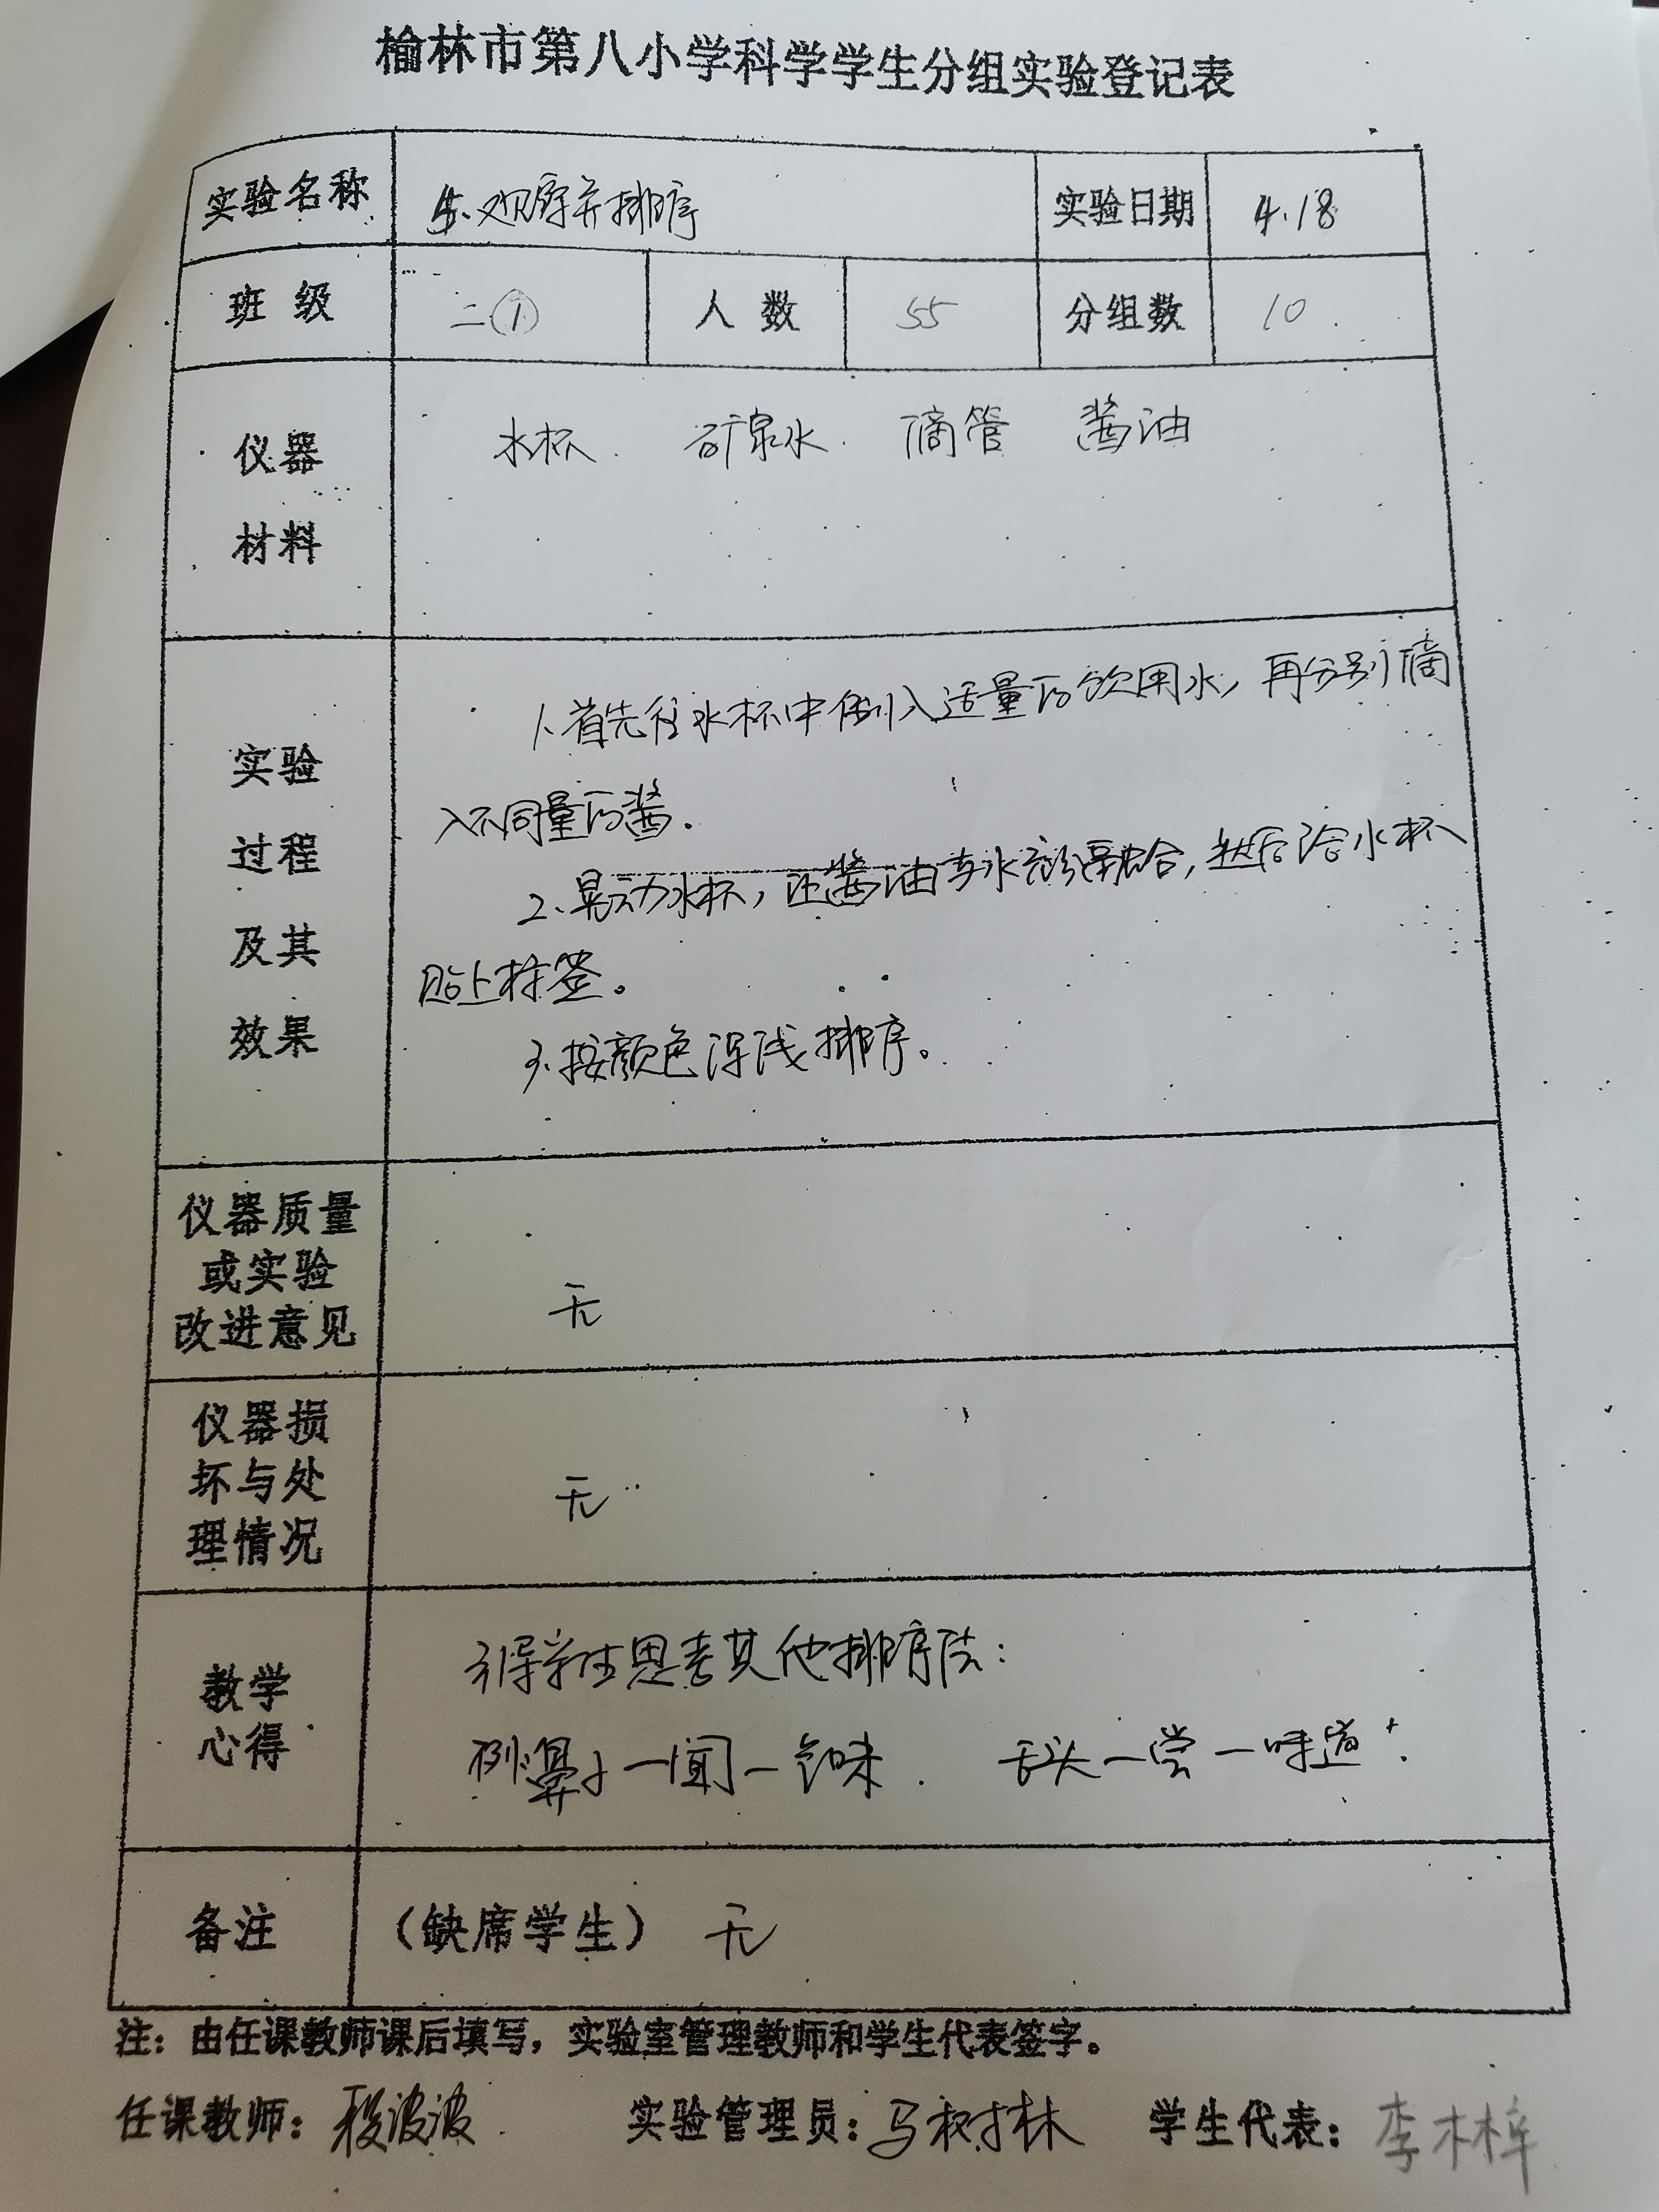 榆林市第八小学科学学生分组实验登记表
实验名称 5、观察并排序 实验日期 4.18
班级 二① 人数 55 分组数 10
仪器 水杯 矿泉水 滴管 酱油
材料
1、首先往水杯中倒入适量的饮用水,再分别滴
实验
入不同量的酱.
过程
2、晃动水杯,让酱油与水充分融合,然后给水杯
及其
贴上标签。
效果
3、按颜色深浅排序。
仪器质量
或实验
改进意见 无
仪器损
坏与处 无
理情况
引导学生思考其他排序法:
教学
心得
例:鼻子一闻一气味 舌头一尝一味道
备注 (缺席学生) 无
注:由任课教师课后填写,实验室管理教师和学生代表签字。
任课教师:段波波 实验管理员:马树林 学生代表:李林梓